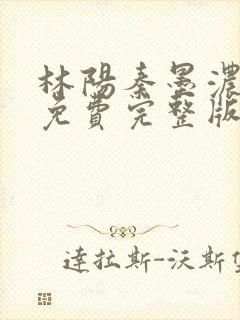 林陽秦墨濃
免費完整版
達拉斯-沃斯堡